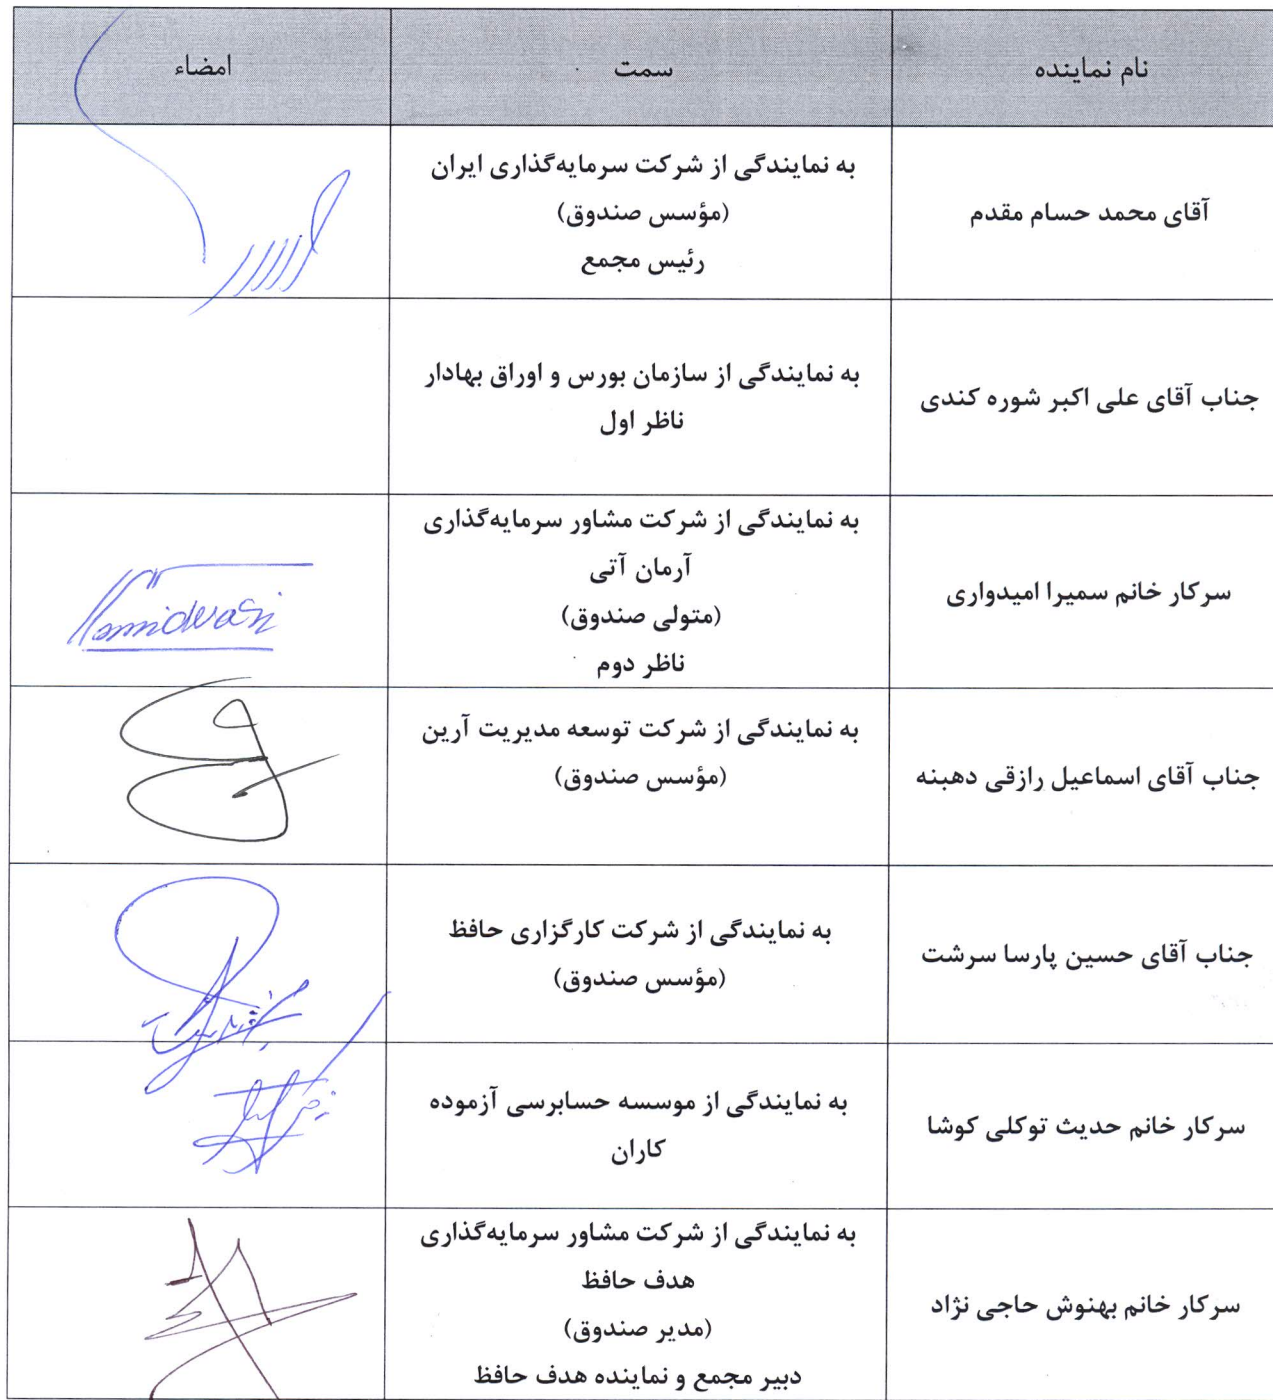 نام نماینده
سمت
امضاء
آقای محمد حسام مقدم
به نمایندگی از شرکت سرمایه‌گذاری ایران
(مؤسس صندوق)
رئیس مجمع
جناب آقای علی اکبر شوره کندی
به نمایندگی از سازمان بورس و اوراق بهادار
ناظر اول
سرکار خانم سمیرا امیدواری
به نمایندگی از شرکت مشاور سرمایه‌گذاری
آرمان آتی
(متولی صندوق)
ناظر دوم
جناب آقای اسماعیل رازقی دهبنه
به نمایندگی از شرکت توسعه مدیریت آرین
(مؤسس صندوق)
جناب آقای حسین پارسا سرشت
به نمایندگی از شرکت کارگزاری حافظ
(مؤسس صندوق)
سرکار خانم حدیث توکلی کوشا
به نمایندگی از موسسه حسابرسی آزموده
کاران
سرکار خانم بهنوش حاجی نژاد
به نمایندگی از شرکت مشاور سرمایه‌گذاری
هدف حافظ
(مدیر صندوق)
دبیر مجمع و نماینده هدف حافظ